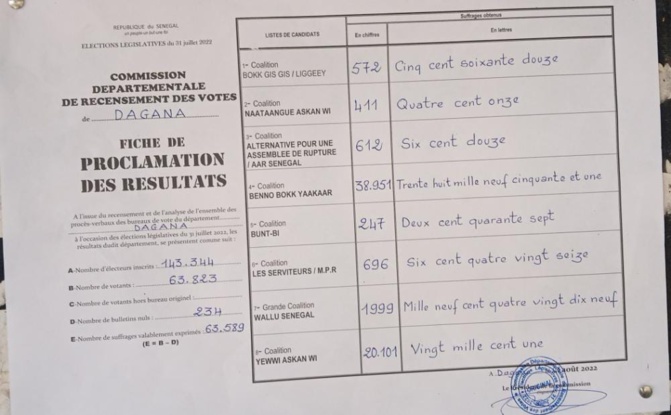 REPUBLIQUE du SENEGAL
ELECTIONS LEGISLATIVES du 31 juillet 2022
COMMISSION
DEPARTEMENTALE
DE RECENSEMENT DES VOTES
de DAGANA
FICHE DE
PROCLAMATION
DES RESULTATS
A l'issue du recensement et de l'analyse de l'ensemble des
procès-verbaux des bureaux de vote du département
DAGANA
à l'occasion des élections législatives du 31 juillet 2022, les
résultats dudit département, se présentent comme suit :
A-Nombre d'électeurs inscrits : 143.344
B-Nombre de votants : 63.823
C-Nombre de votants hors bureau originel :
D-Nombre de bulletins nuls : 234
E-Nombre de suffrages valablement exprimés 63.589
(E = B – D)
Suffrages obtenus
LISTES DE CANDIDATS En chiffres En lettres
1ère Coalition
BOKK GIS GIS / LIGGEEY 572 Cinq cent soixante douze
2ème Coalition
NAATAANGUE ASKAN WI 411 Quatre cent onze
3ème Coalition
ALTERNATIVE POUR UNE
ASSEMBLEE DE RUPTURE
/ AAR SENEGAL 612 Six cent douze
4ème Coalition
BENNO BOKK YAAKAAR 38.951 Trente huit mille neuf cinquante et une
5ème Coalition
BUNT-BI 247 Deux cent quarante sept
6ème Coalition
LES SERVITEURS / M.P.R 696 Six cent quatre vingt seize
7ème Grande Coalition
WALLU SENEGAL 1999 Mille neuf cent quatre vingt dix neuf
8ème Coalition
YEWWI ASKAN WI 20.101 Vingt mille cent une
A Dag août 2022